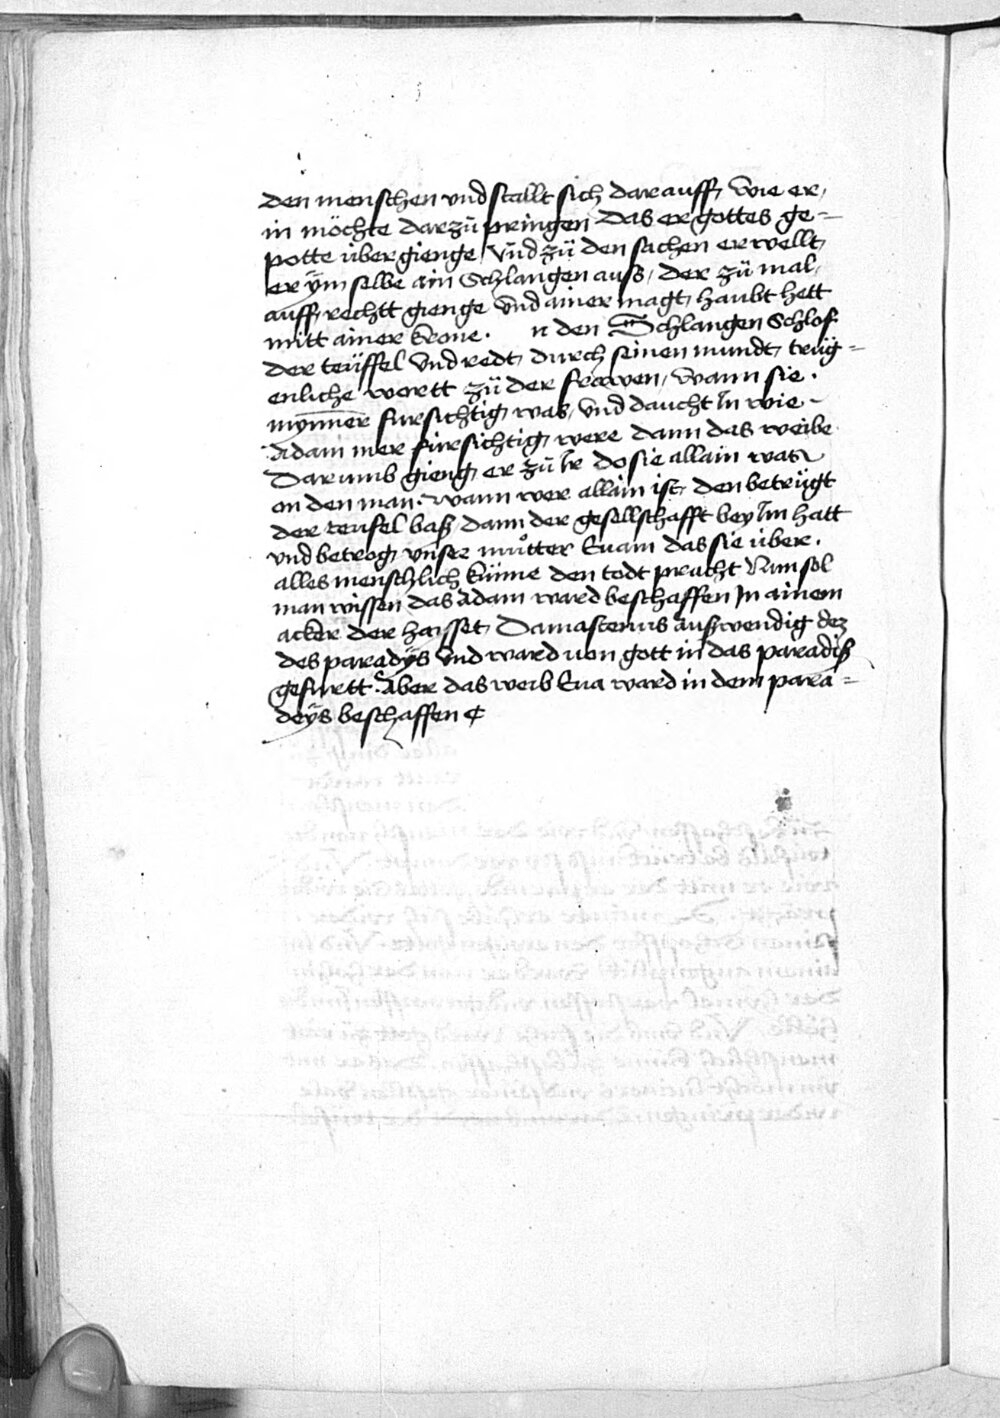 den menschen vnd stallt sich darauff, wie er,
in möchte darzü pringen das er gottes ge=
potte übergienge, vnd zü den sachen erwellt
er ÿm selbe ain Schlangen auß, der zü mal,
auff,rechtt gienge vnd ainer magt, haubt hett
mitt ainer krone. n den Schlangen Schlof.
der teüffel vnd redt, durch seinen mundt, trüg=
enliche wortt zü der frawen, wann sie.
mynner fursichtig was, vnd daucht In wie -
Adam mer fürsichtig were dann das weibe
Darumb gieng er zü Ir do sie allain was
on den man. wann wer allain ist, den betrügt
der teufel baß, dann der gesellschafft bey Im hatt
vnd betrog vnser muͦtter Euam das sie über.
alles menschlich künne den todt pracht Nun sol
man wissen das Adam ward beschaffen In ainem
acker der haisset, Damascenus außwendig dez
des paradÿs vnd ward von gott in das paradiß
gefurtt. Aber das weib Eua ward in dem para=
deÿs beschaffen ¢